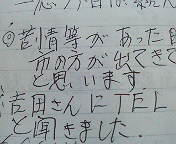 ◎苦情等があった
市の方が出てきて
と思います
吉田さんにTEL
と聞きました.